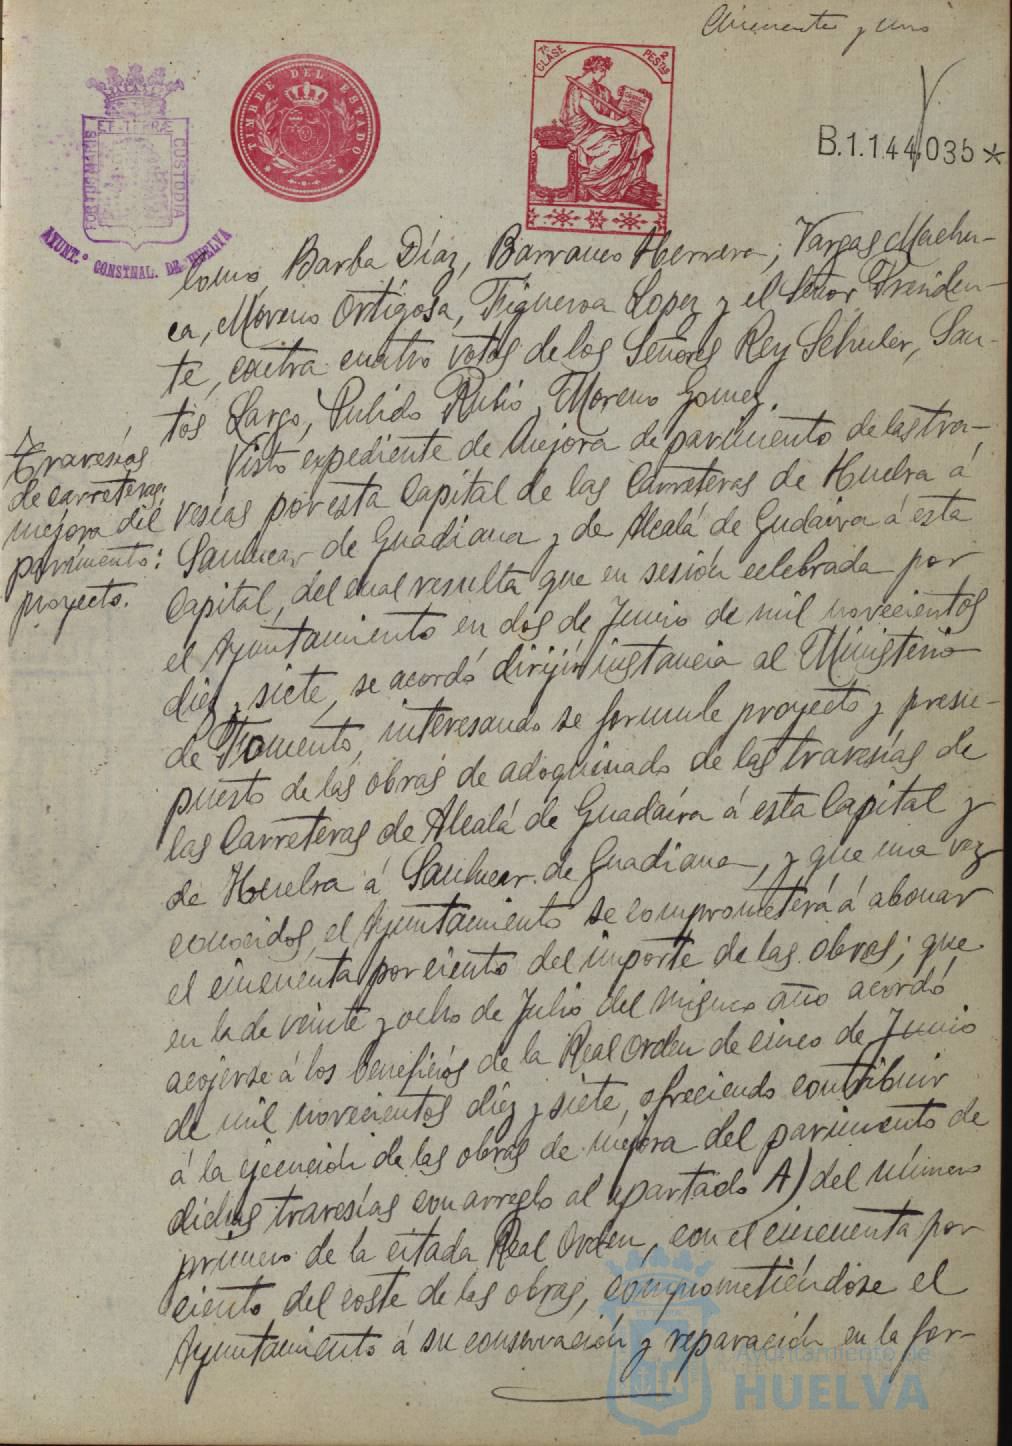 Cincuenta y uno
TIMBRE DEL ESTADO
7ª CLASE
2 PESETAS
PORTUS MARIS
ET TERRÆ
CUSTODIA
AYUNT.º CONSTNAL. DE HUELVA
B.1.144,035*
Barba Díaz, Barranco Herrera, Vargas Machu-
ca, Moreno Ortigosa, Figueroa Lopez y el Señor Presiden-
te, contra cuatro votos de los Señores Rey Schuler, San-
tos Largo, Pulido Rubio y Moreno Gomez.
Travesías
de carreteras;
mejora del
pavimento:
proyecto.
Visto expediente de mejora de pavimento de las tra-
vesías por esta Capital de las Carreteras de Huelva á
Sanlucar de Guadiana y de Alcalá de Gudaira á esta
Capital, del cual resulta que en sesión celebrada por
el Ayuntamiento en dos de Junio de mil novecientos
diez y siete, se acordó dirijir instancia al Ministerio
de Fomento, interesando se formule proyecto y presu-
puesto de las obras de adoquinado de las travesías de
las Carreteras de Alcalá de Guadaira á esta Capital y
de Huelva á Sanlucar de Guadiana, y que una vez
conocidos, el Ayuntamiento se comprometerá á abonar
el cincuenta por ciento del importe de las obras; que
en la de veinte y ocho de Julio del mismo año acordó
acojerse á los beneficios de la Real Orden de cinco de Junio
de mil novecientos diez y siete, ofreciendo contribuir
á la ejecución de las obras de mejora del pavimento de
dichas travesías con arreglo al apartado A) del número
primero de la citada Real Orden, con el cincuenta por
ciento del coste de las obras, comprometiéndose el
Ayuntamiento á su conservación y reparación en la for-
Ayuntamiento de
HUELVA